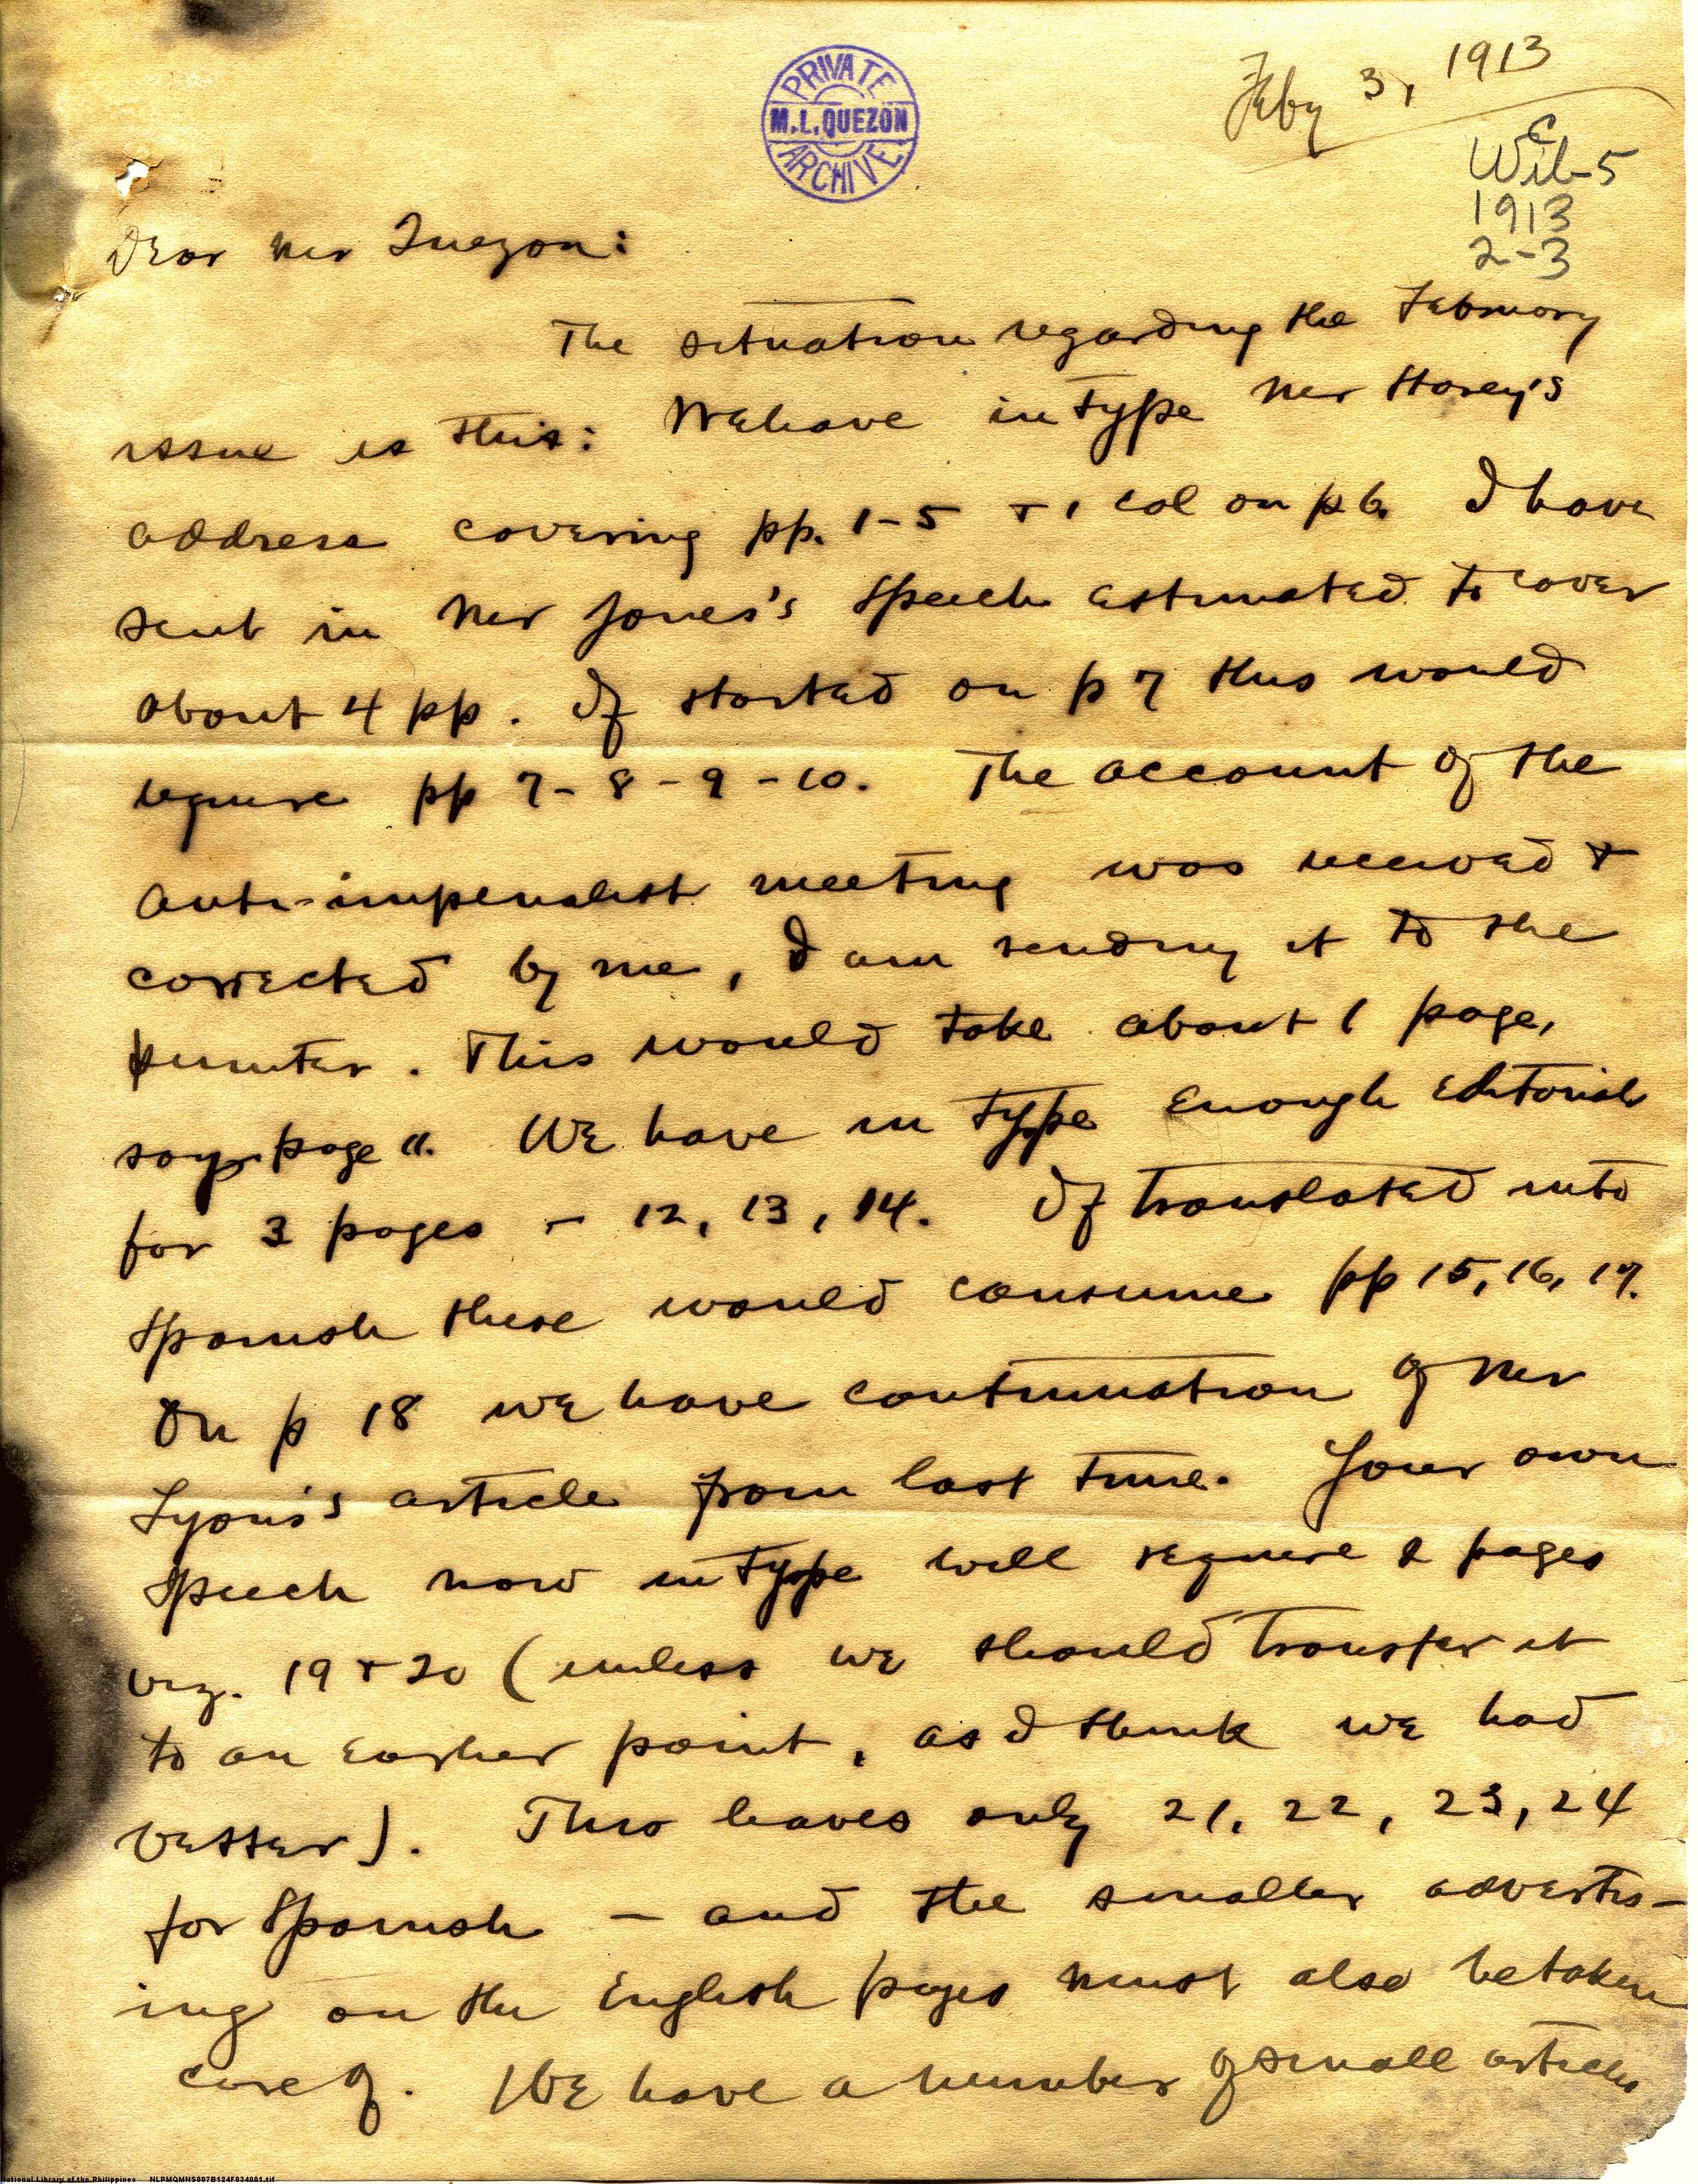 Feby 3, 1913
PRIVATE
M.L. QUEZON
ARCHIVE
C
Wil-5
1913
2-3
Dear Mr Quezon:
The situation regarding the February
issue is this: We have in type Mr Storey's
address covering pp. 1-5 + 1 col on p 6. I have
sent in Mr Jones's speech estimated to cover
about 4 pp. If started on p 7 this would
require pp 7-8-9-10. The account of the
anti-imperialist meeting was received +
corrected by me, I am sending it to the
printer. This would take about 1 page,
say page 11. We have in type enough editorials
for 3 pages - 12, 13, 14. If translated into
Spanish these would consume pp 15, 16, 17.
On p 18 we have continuation of Mr
Lyons's article from last time. Your own
speech now in type will require 2 pages
viz. 19 + 20 (unless we should transfer it
to an earlier point, as I think we had
better). This leaves only 21, 22, 23, 24
for Spanish - and the smaller advertis-
ing on the English pages must also be taken
care of. We have a number of small articles
National Library of the Philippines NLPMQMNS007B124F034001.tif